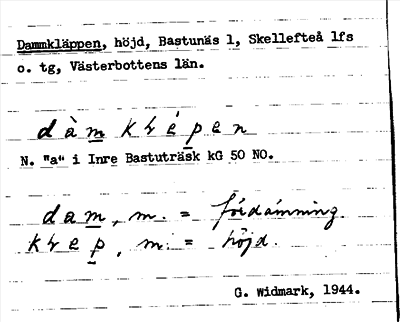 Dammkläppen, höjd, Bastunäs 1, Skellefteå lfs
o. tg, Västerbottens län.
N. "a" i Inre Bastuträsk kG 50 NO.
dam, m. = fördämning.
m. = höjd.
G. Widmark, 1944.